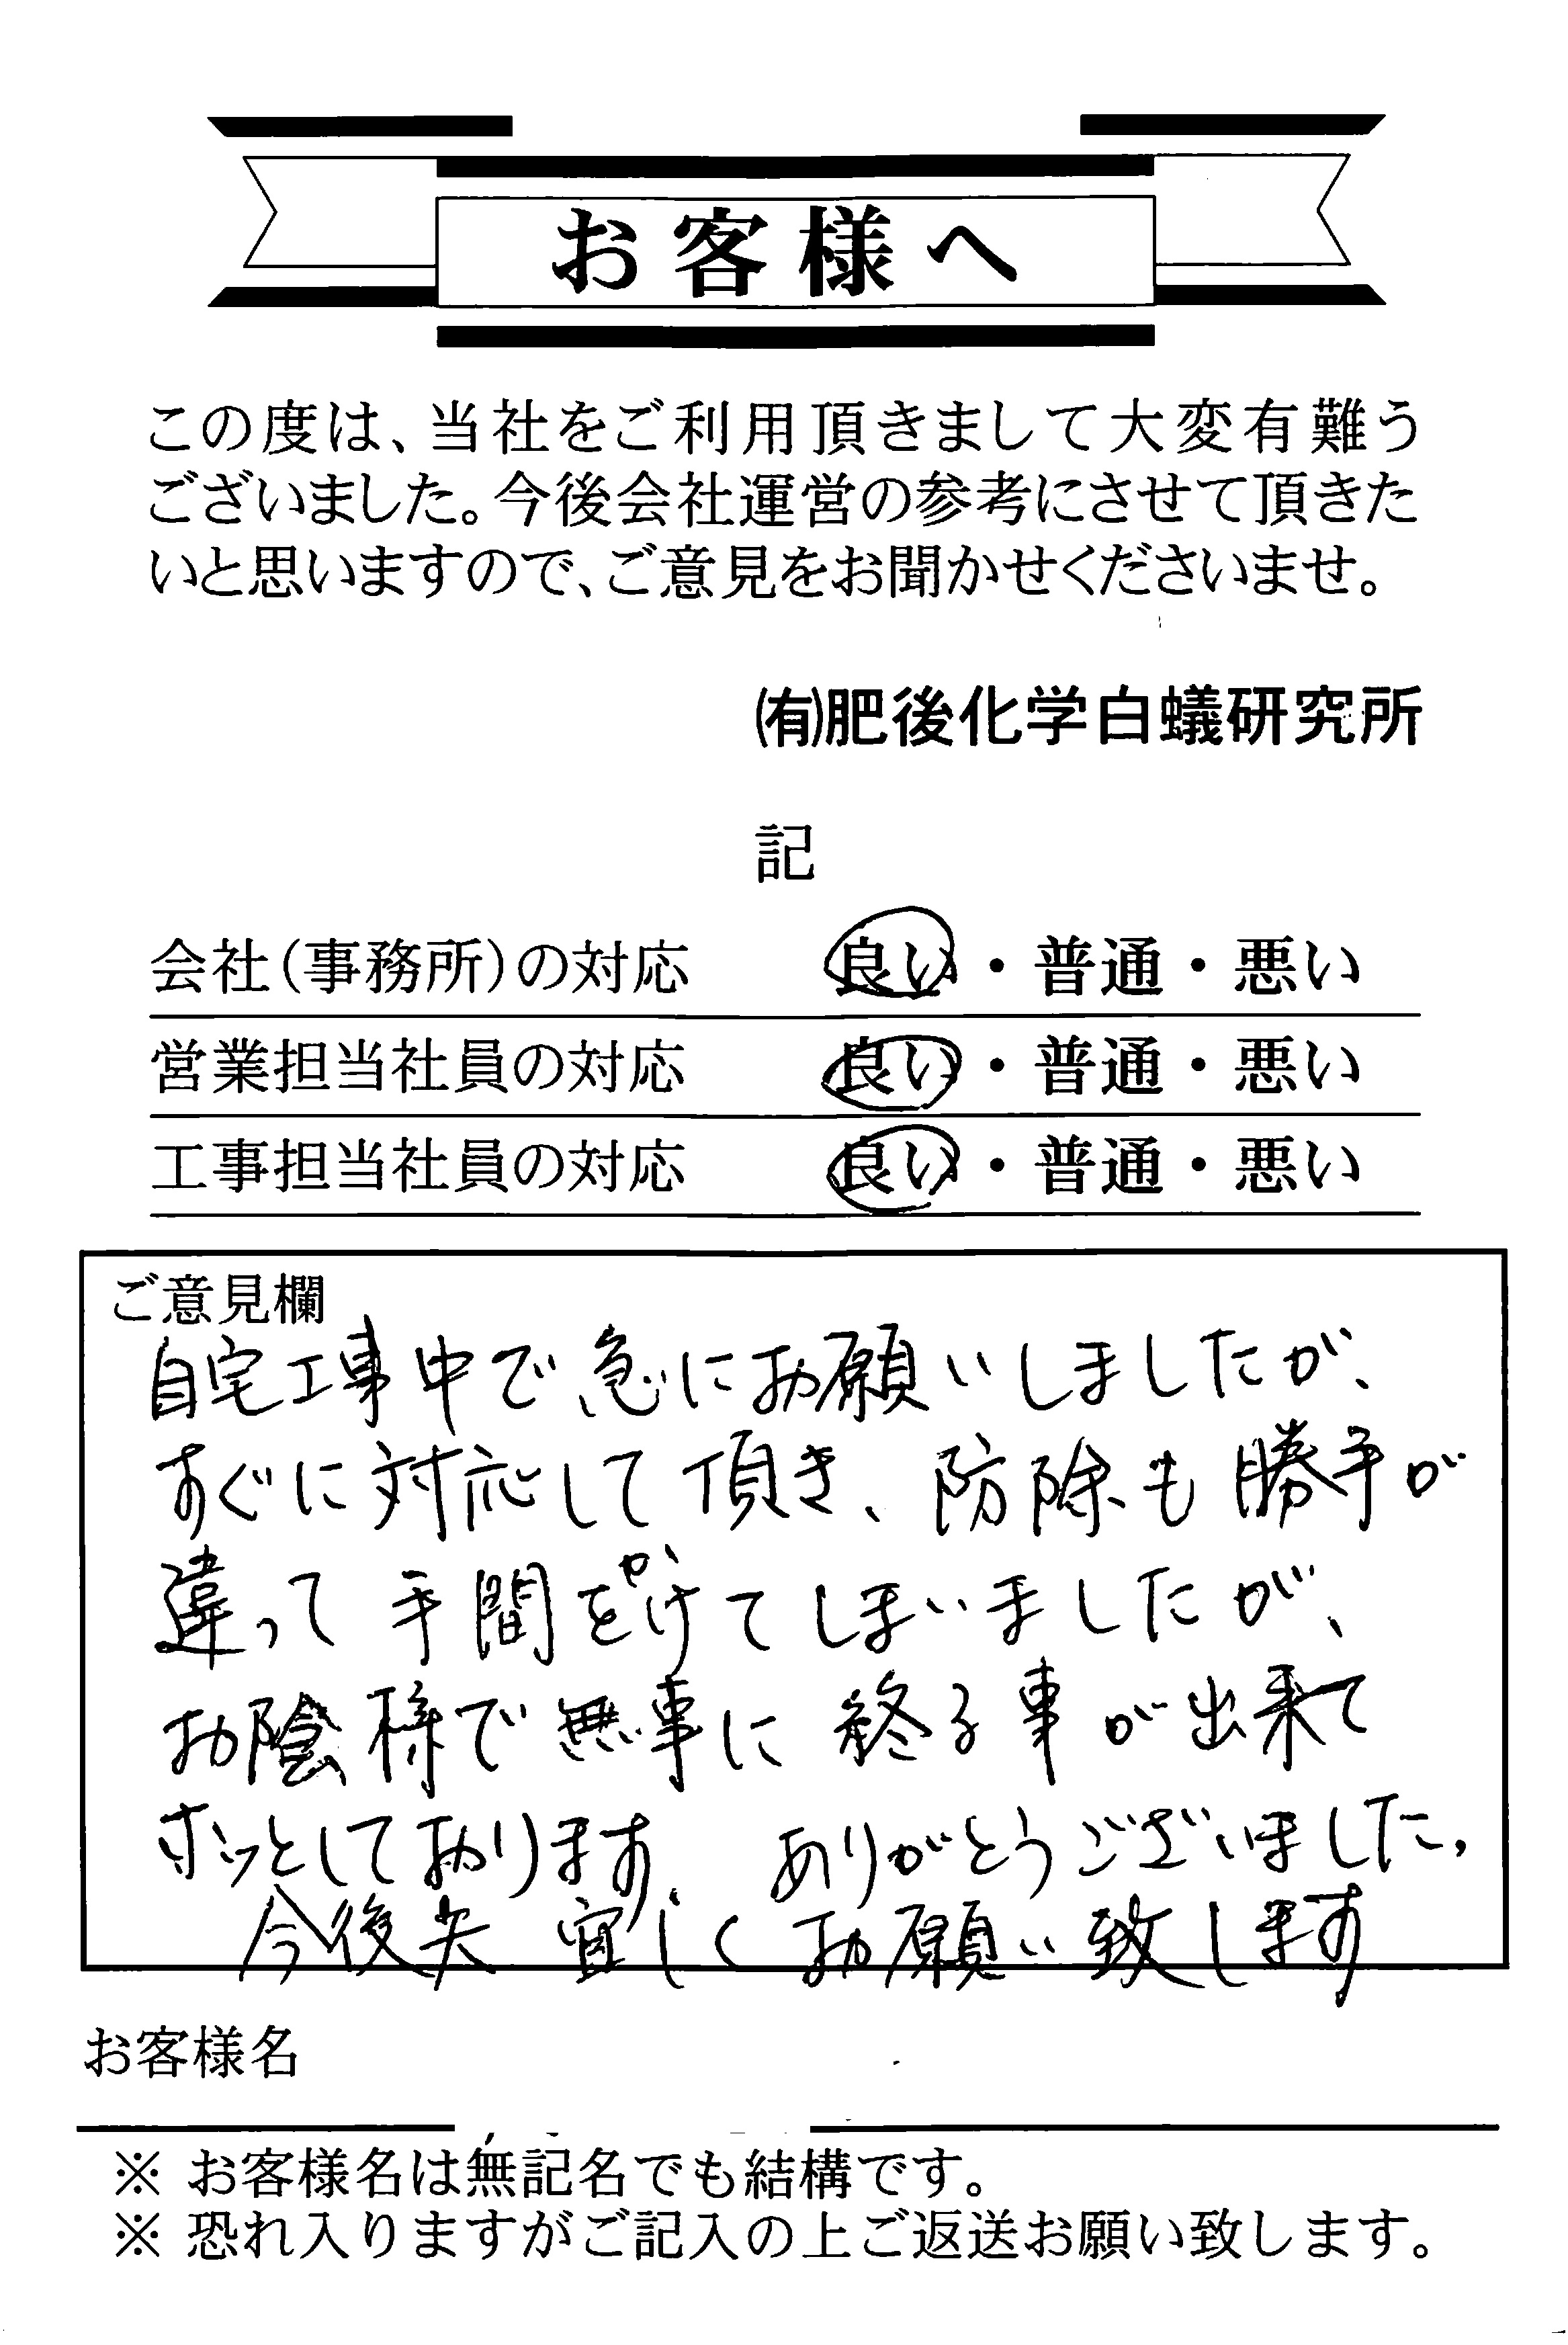 お客様へ
この度は、当社をご利用頂きまして大変有難う
ございました。今後会社運営の参考にさせて頂きた
いと思いますので、ご意見をお聞かせくださいませ。
㈲肥後化学白蟻研究所
記
会社(事務所)の対応 良い・普通・悪い
営業担当社員の対応 良い・普通・悪い
工事担当社員の対応 良い・普通・悪い
ご意見欄
自宅工事中で急にお願いしましたが、
すぐに対応して頂き、防除も勝手が
違って手間をかけてしまいましたが、
お陰様で無事に終る事が出来て
ホッとしております。ありがとうございました。
今後共宜しくお願い致します
お客様名
※ お客様名は無記名でも結構です。
※ 恐れ入りますがご記入の上ご返送お願い致します。